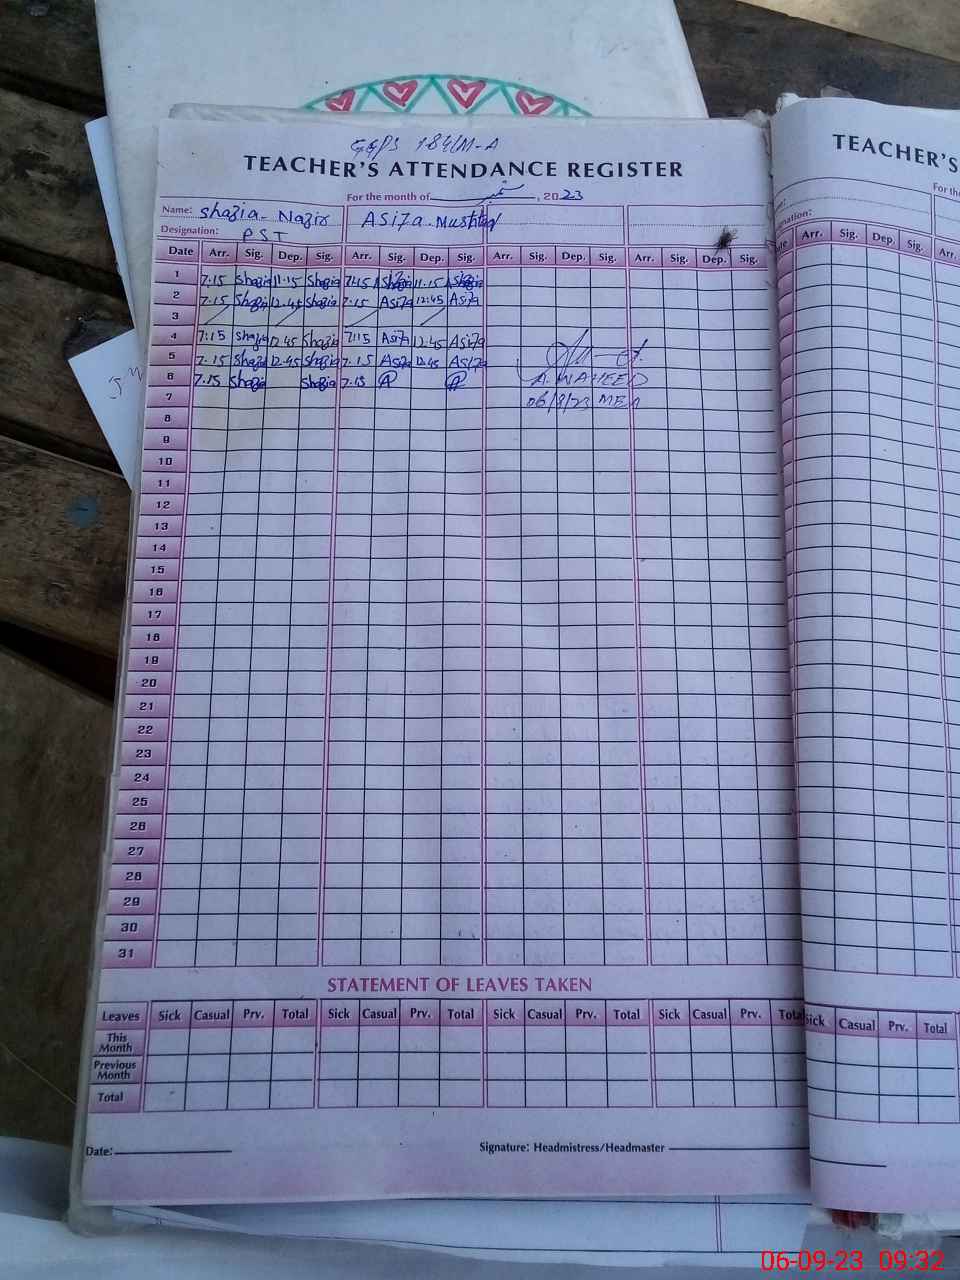 GGPS 184/M-A
TEACHER'S ATTENDANCE REGISTER
For the month of ستمبر , 2023
Name: Shazia Nazir Asifa Mushtaq
Designation: PST
Date Arr. Sig. Dep. Sig. Arr. Sig. Dep. Sig. Arr. Sig. Dep. Sig. Arr. Sig. Dep. Sig.
1 7.15 Shazia 11.15 Shazia 7.15 11.15
2 7.15 Shazia 12.45 Shazia 7.15 Asifa 12:45 Asifa
3
4 7:15 Shazia 12.45 Shazia 7:15 Asifa 12.45 Asifa
5 7.15 Shazia 12.45 Shazia 7.15 Asifa 12.45 Asifa
6 7.15 Shazia Shazia 7.15 A A
A. WAHEED
7
06/9/23 MEA
8
9
10
11
12
13
14
15
16
17
18
19
20
21
22
23
24
25
26
27
28
29
30
31
STATEMENT OF LEAVES TAKEN
Leaves Sick Casual Prv. Total Sick Casual Prv. Total Sick Casual Prv. Total Sick Casual Prv. Total
This Month
Previous Month
Total
Date:
Signature: Headmistress/Headmaster
TEACHER'S
For the
Arr. Sig. Dep. Sig. Arr.
Sick Casual Prv. Total
06-09-23 09:32